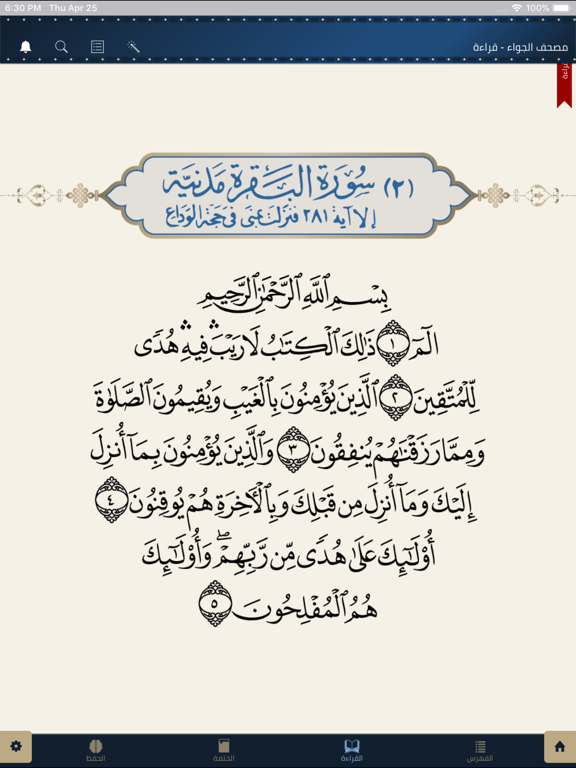 6:30 PM Thu Apr 25 100%
مصحف الجواء - قراءة
(٢) سُورَة البَقَرة مَدَنِيَّة
إلا آية ٢٨١ فنزلت بمنى في حجة الوداع
بِسْمِ ٱللَّهِ ٱلرَّحْمَٰنِ ٱلرَّحِيمِ
الٓمٓ ١ ذَٰلِكَ ٱلْكِتَٰبُ لَا رَيْبَۛ فِيهِۛ هُدًى
لِّلْمُتَّقِينَ ٢ ٱلَّذِينَ يُؤْمِنُونَ بِٱلْغَيْبِ وَيُقِيمُونَ ٱلصَّلَوٰةَ
وَمِمَّا رَزَقْنَٰهُمْ يُنفِقُونَ ٣ وَٱلَّذِينَ يُؤْمِنُونَ بِمَآ أُنزِلَ
إِلَيْكَ وَمَآ أُنزِلَ مِن قَبْلِكَ وَبِٱلْأَخِرَةِ هُمْ يُوقِنُونَ ٤
أُوْلَٰٓئِكَ عَلَىٰ هُدًى مِّن رَّبِّهِمْۖ وَأُوْلَٰٓئِكَ
هُمُ ٱلْمُفْلِحُونَ ٥
الفهرس
القراءة
الختمة
الحفظ